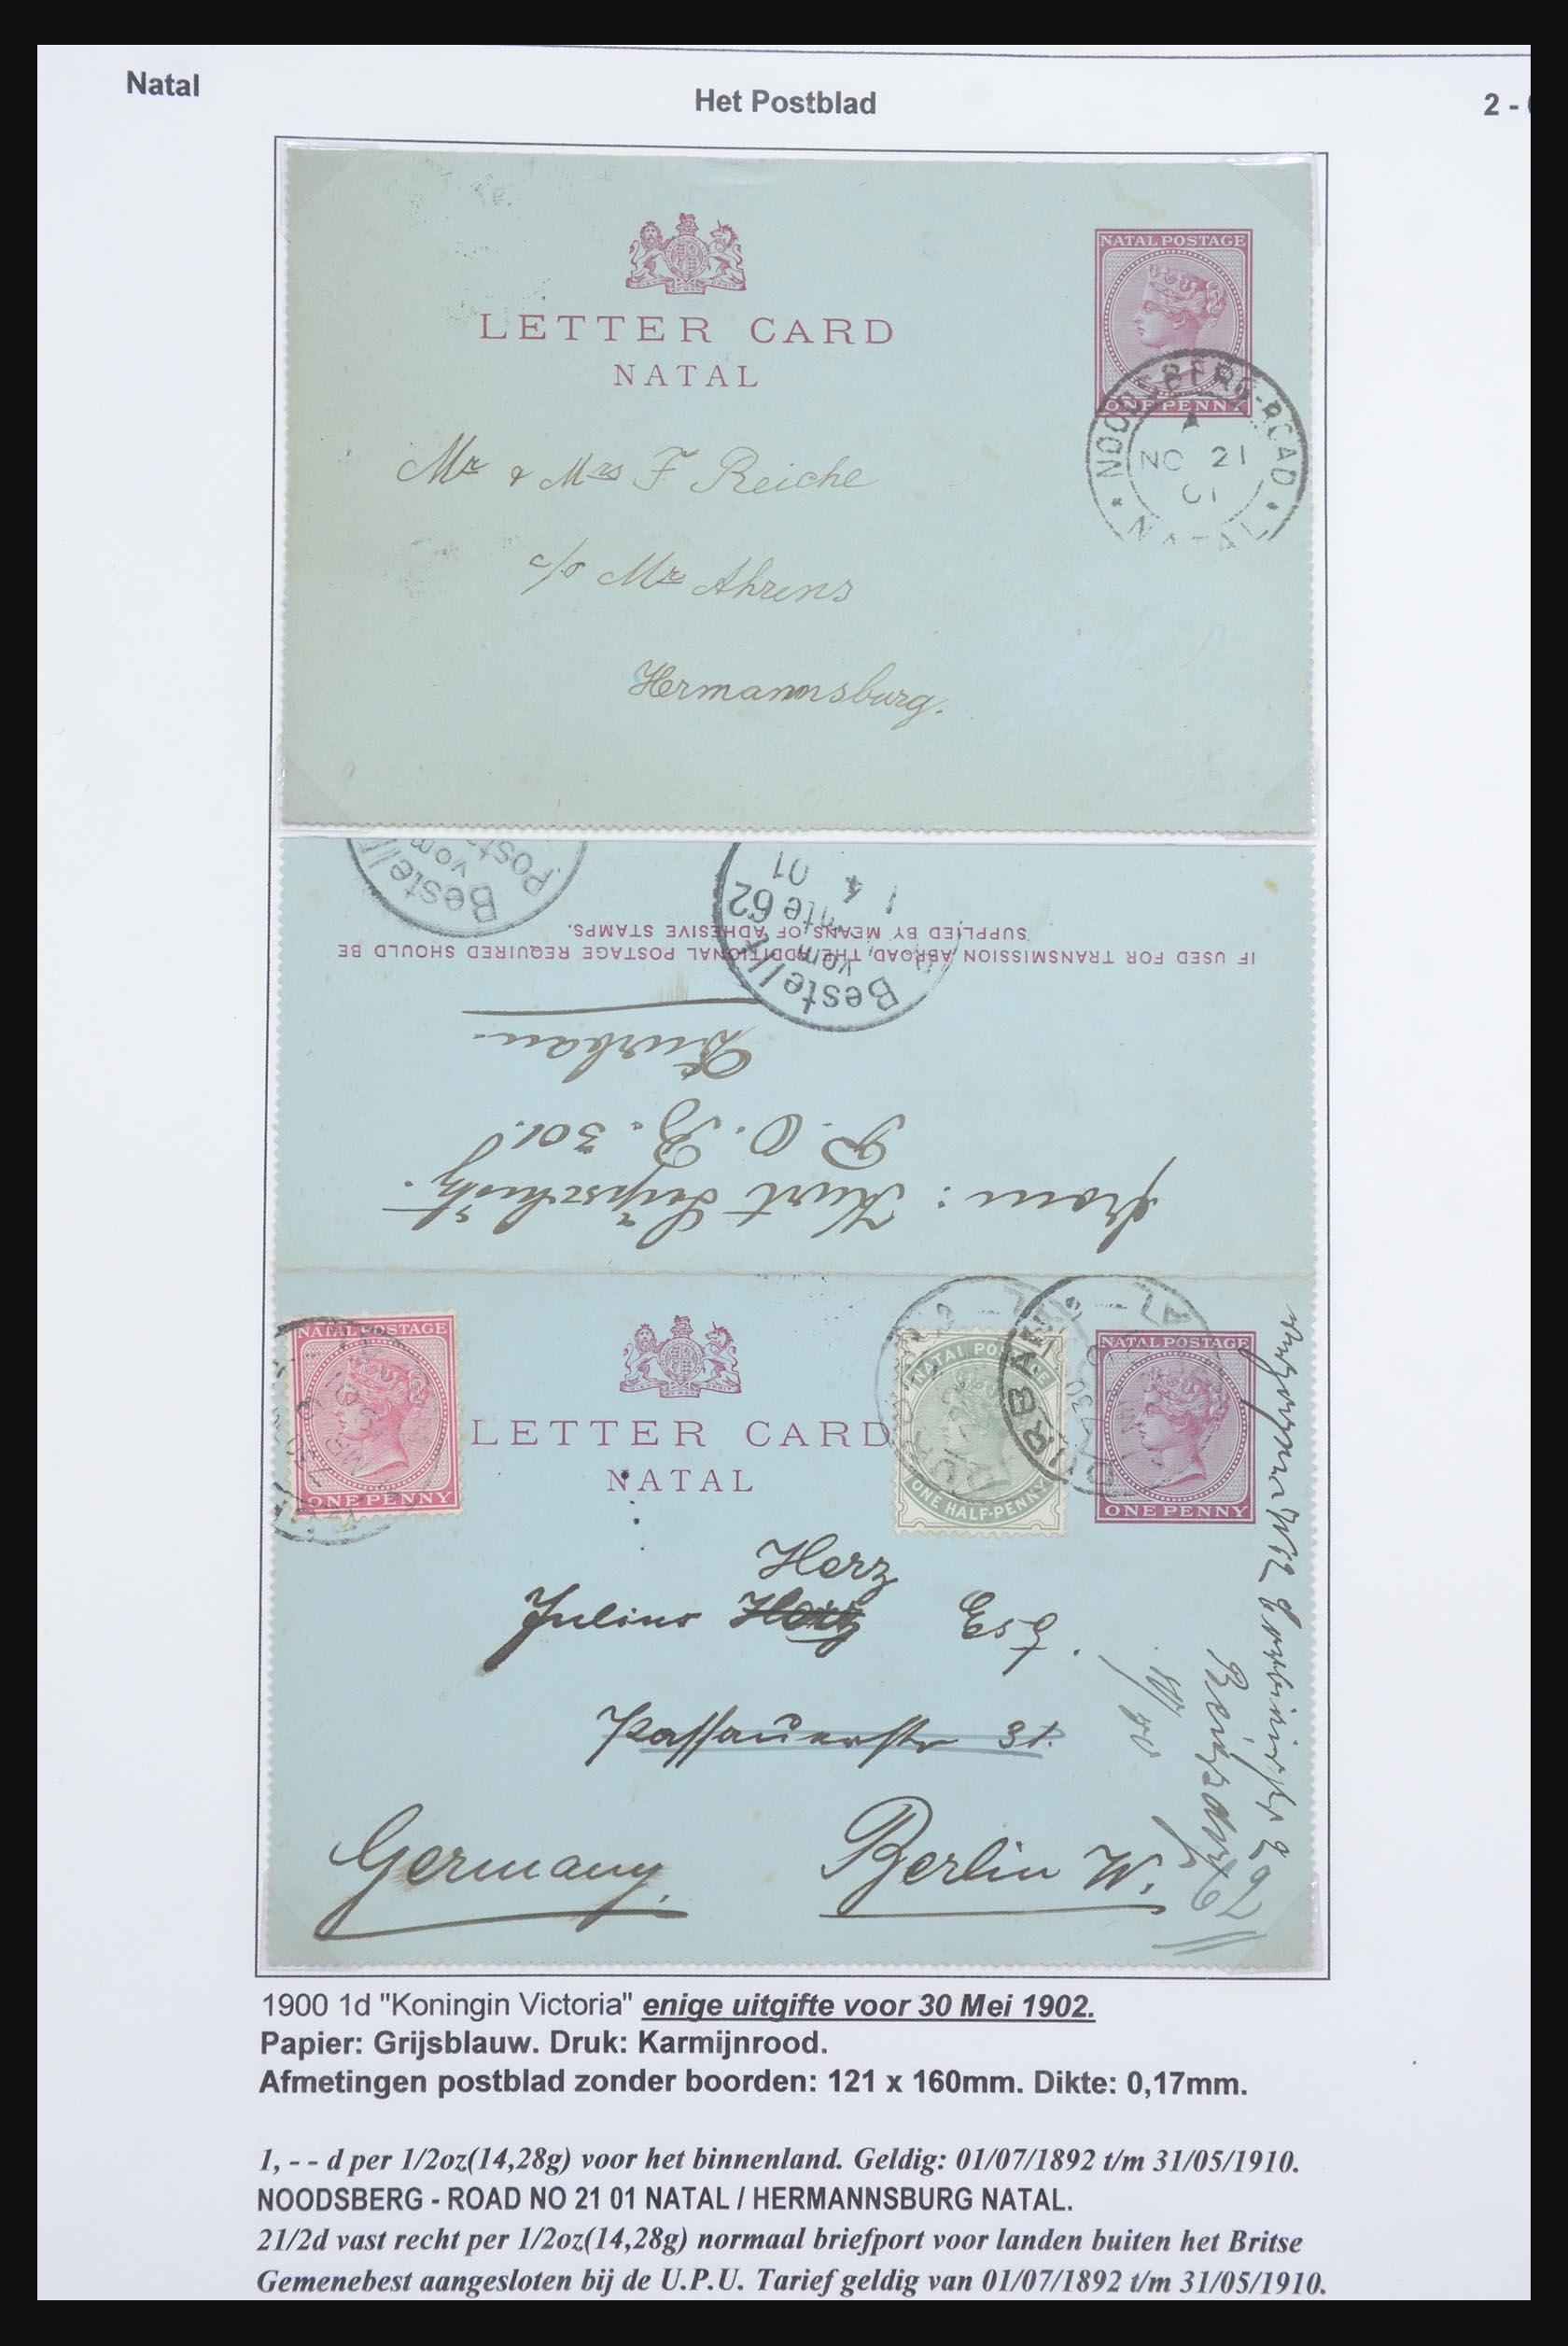 Natal
Het Postblad
2 -
LETTER CARD
NATAL
NATAL POSTAGE
ONE PENNY
NOODSBERG-ROAD
A
NO 21
01
NATAL
Mr & Mrs F Reiche
c/o Mr Ahrens
Hermannsburg.
Bestellt
vom
Post
Bestellt
vom
62
1 4
01
IF USED FOR TRANSMISSION ABROAD, THE ADDITIONAL POSTAGE REQUIRED SHOULD BE
SUPPLIED BY MEANS OF ADHESIVE STAMPS.
from: Kurt Lippschütz.
P. O. B. 301.
Durban.
NATAL POSTAGE
ONE PENNY
LETTER CARD
NATAL
NATAL POSTAGE
ONE HALF-PENNY
DURBAN
NATAL POSTAGE
ONE PENNY
Herz
Julius Herz Esq.
Passauerstr 31.
Germany.
Berlin W.
62
1900 1d "Koningin Victoria" enige uitgifte voor 30 Mei 1902.
Papier: Grijsblauw. Druk: Karmijnrood.
Afmetingen postblad zonder boorden: 121 x 160mm. Dikte: 0,17mm.
1, - - d per 1/2oz(14,28g) voor het binnenland. Geldig: 01/07/1892 t/m 31/05/1910.
NOODSBERG - ROAD NO 21 01 NATAL / HERMANNSBURG NATAL.
21/2d vast recht per 1/2oz(14,28g) normaal briefport voor landen buiten het Britse
Gemenebest aangesloten bij de U.P.U. Tarief geldig van 01/07/1892 t/m 31/05/1910.